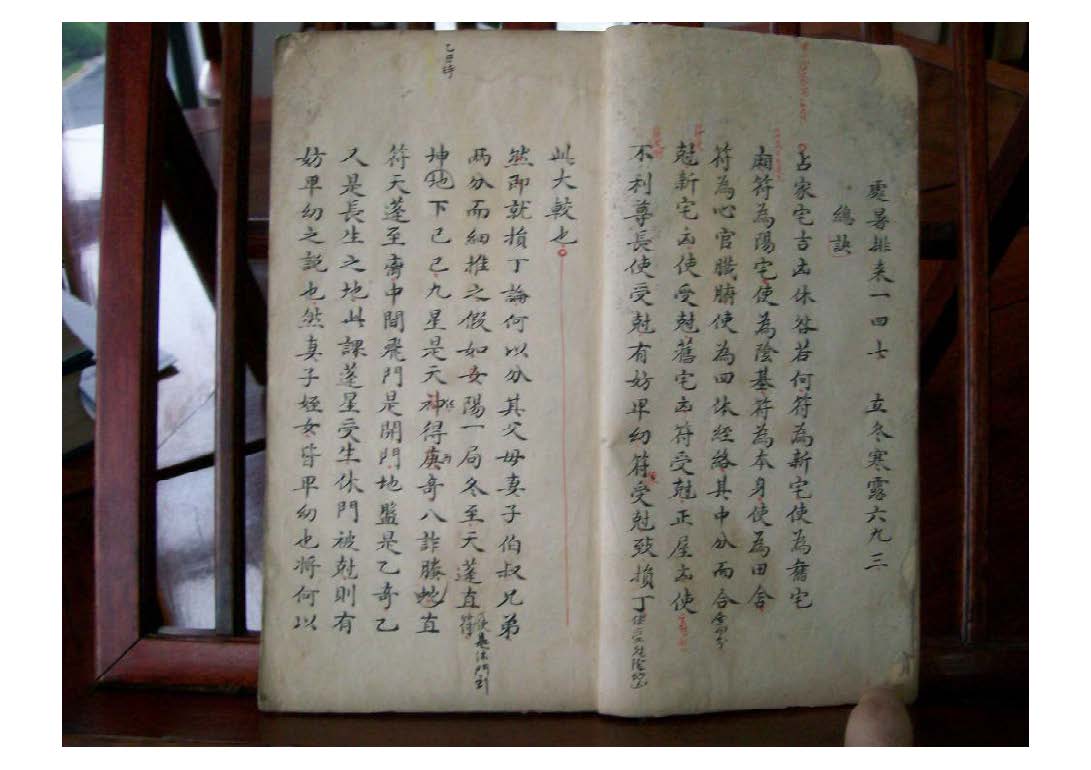 處暑排来一四七 立冬寒露六九三
總訣
占家宅吉凶休咎若何符為新宅使為舊宅
廂符為陽宅使為陰基符為本身使為田舍
符為心官臟腑使為四体经絡其中分而合合而分
尅新宅凶使受尅舊宅凶符受尅正屋凶使
不利尊長使受尅有妨卑幼符受尅致損丁
此大較也
然即就損丁論何以分其父母妻子伯叔兄弟
兩分而細推之假如女陽一局冬至天蓬直
坤地下己己九星是天神得庚奇八詐螣蛇直
符天蓬至齋中間飛門是開門地盤是乙奇乙
又是長生之地此課蓬星受生休門被尅則有
妨卑幼之説也然妻子姪女皆卑幼也將何以
乙日時